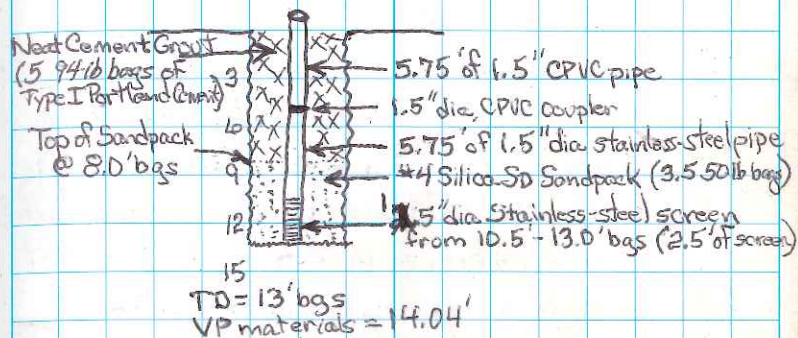 Neat Cement Grout
(5 94 lb bags of
Type I Portland Cement)
Top of Sandpack
@ 8.0' bgs
3
6
9
12
15
5.75' of 1.5" CPVC pipe
1.5" dia. CPVC coupler
5.75' of 1.5" dia stainless-steel pipe
#4 Silica SD Sandpack (3.5 50 lb bags)
1.5" dia. Stainless-steel screen
from 10.5'-13.0' bgs (2.5' of screen)
TD = 13' bgs
VP materials = 14.04'